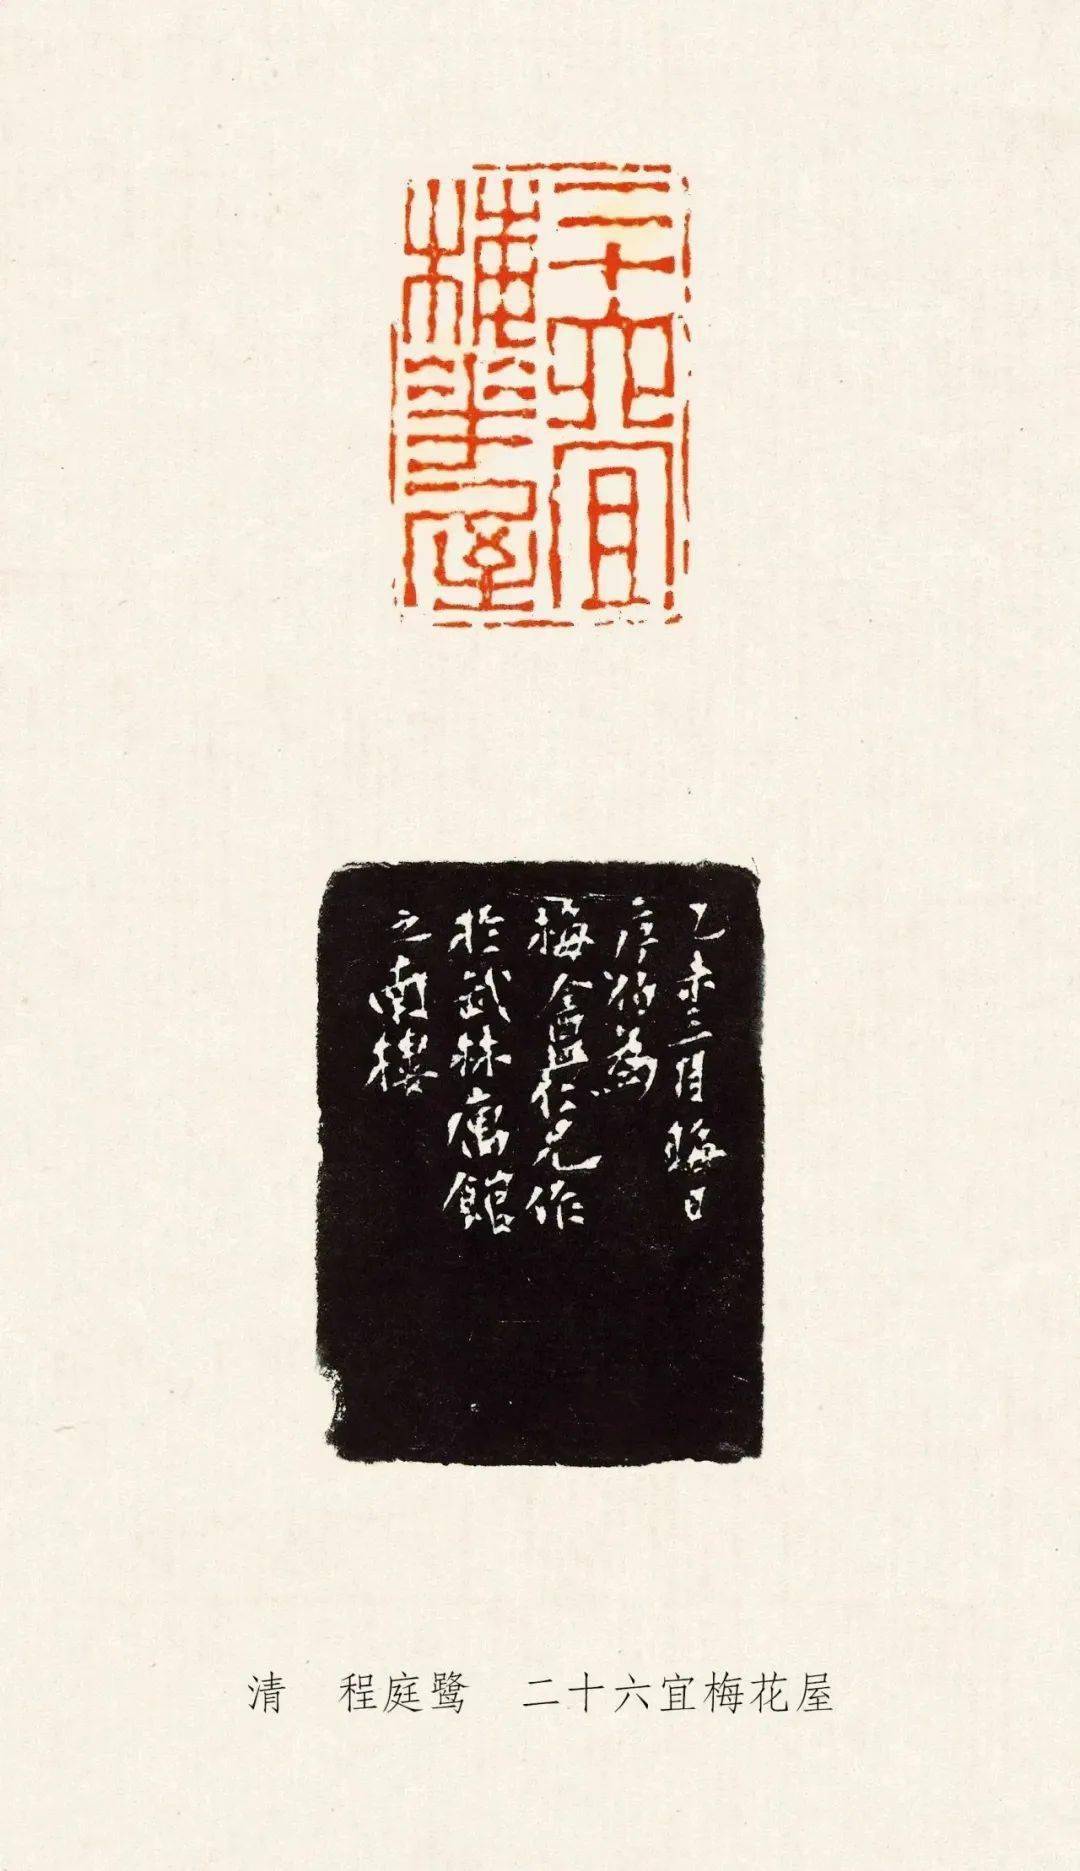 二十六宜
梅華屋
乙未三月晦日
序伯為
梅盦仁兄作
於武林寓館
之南樓
清 程庭鹭 二十六宜梅花屋